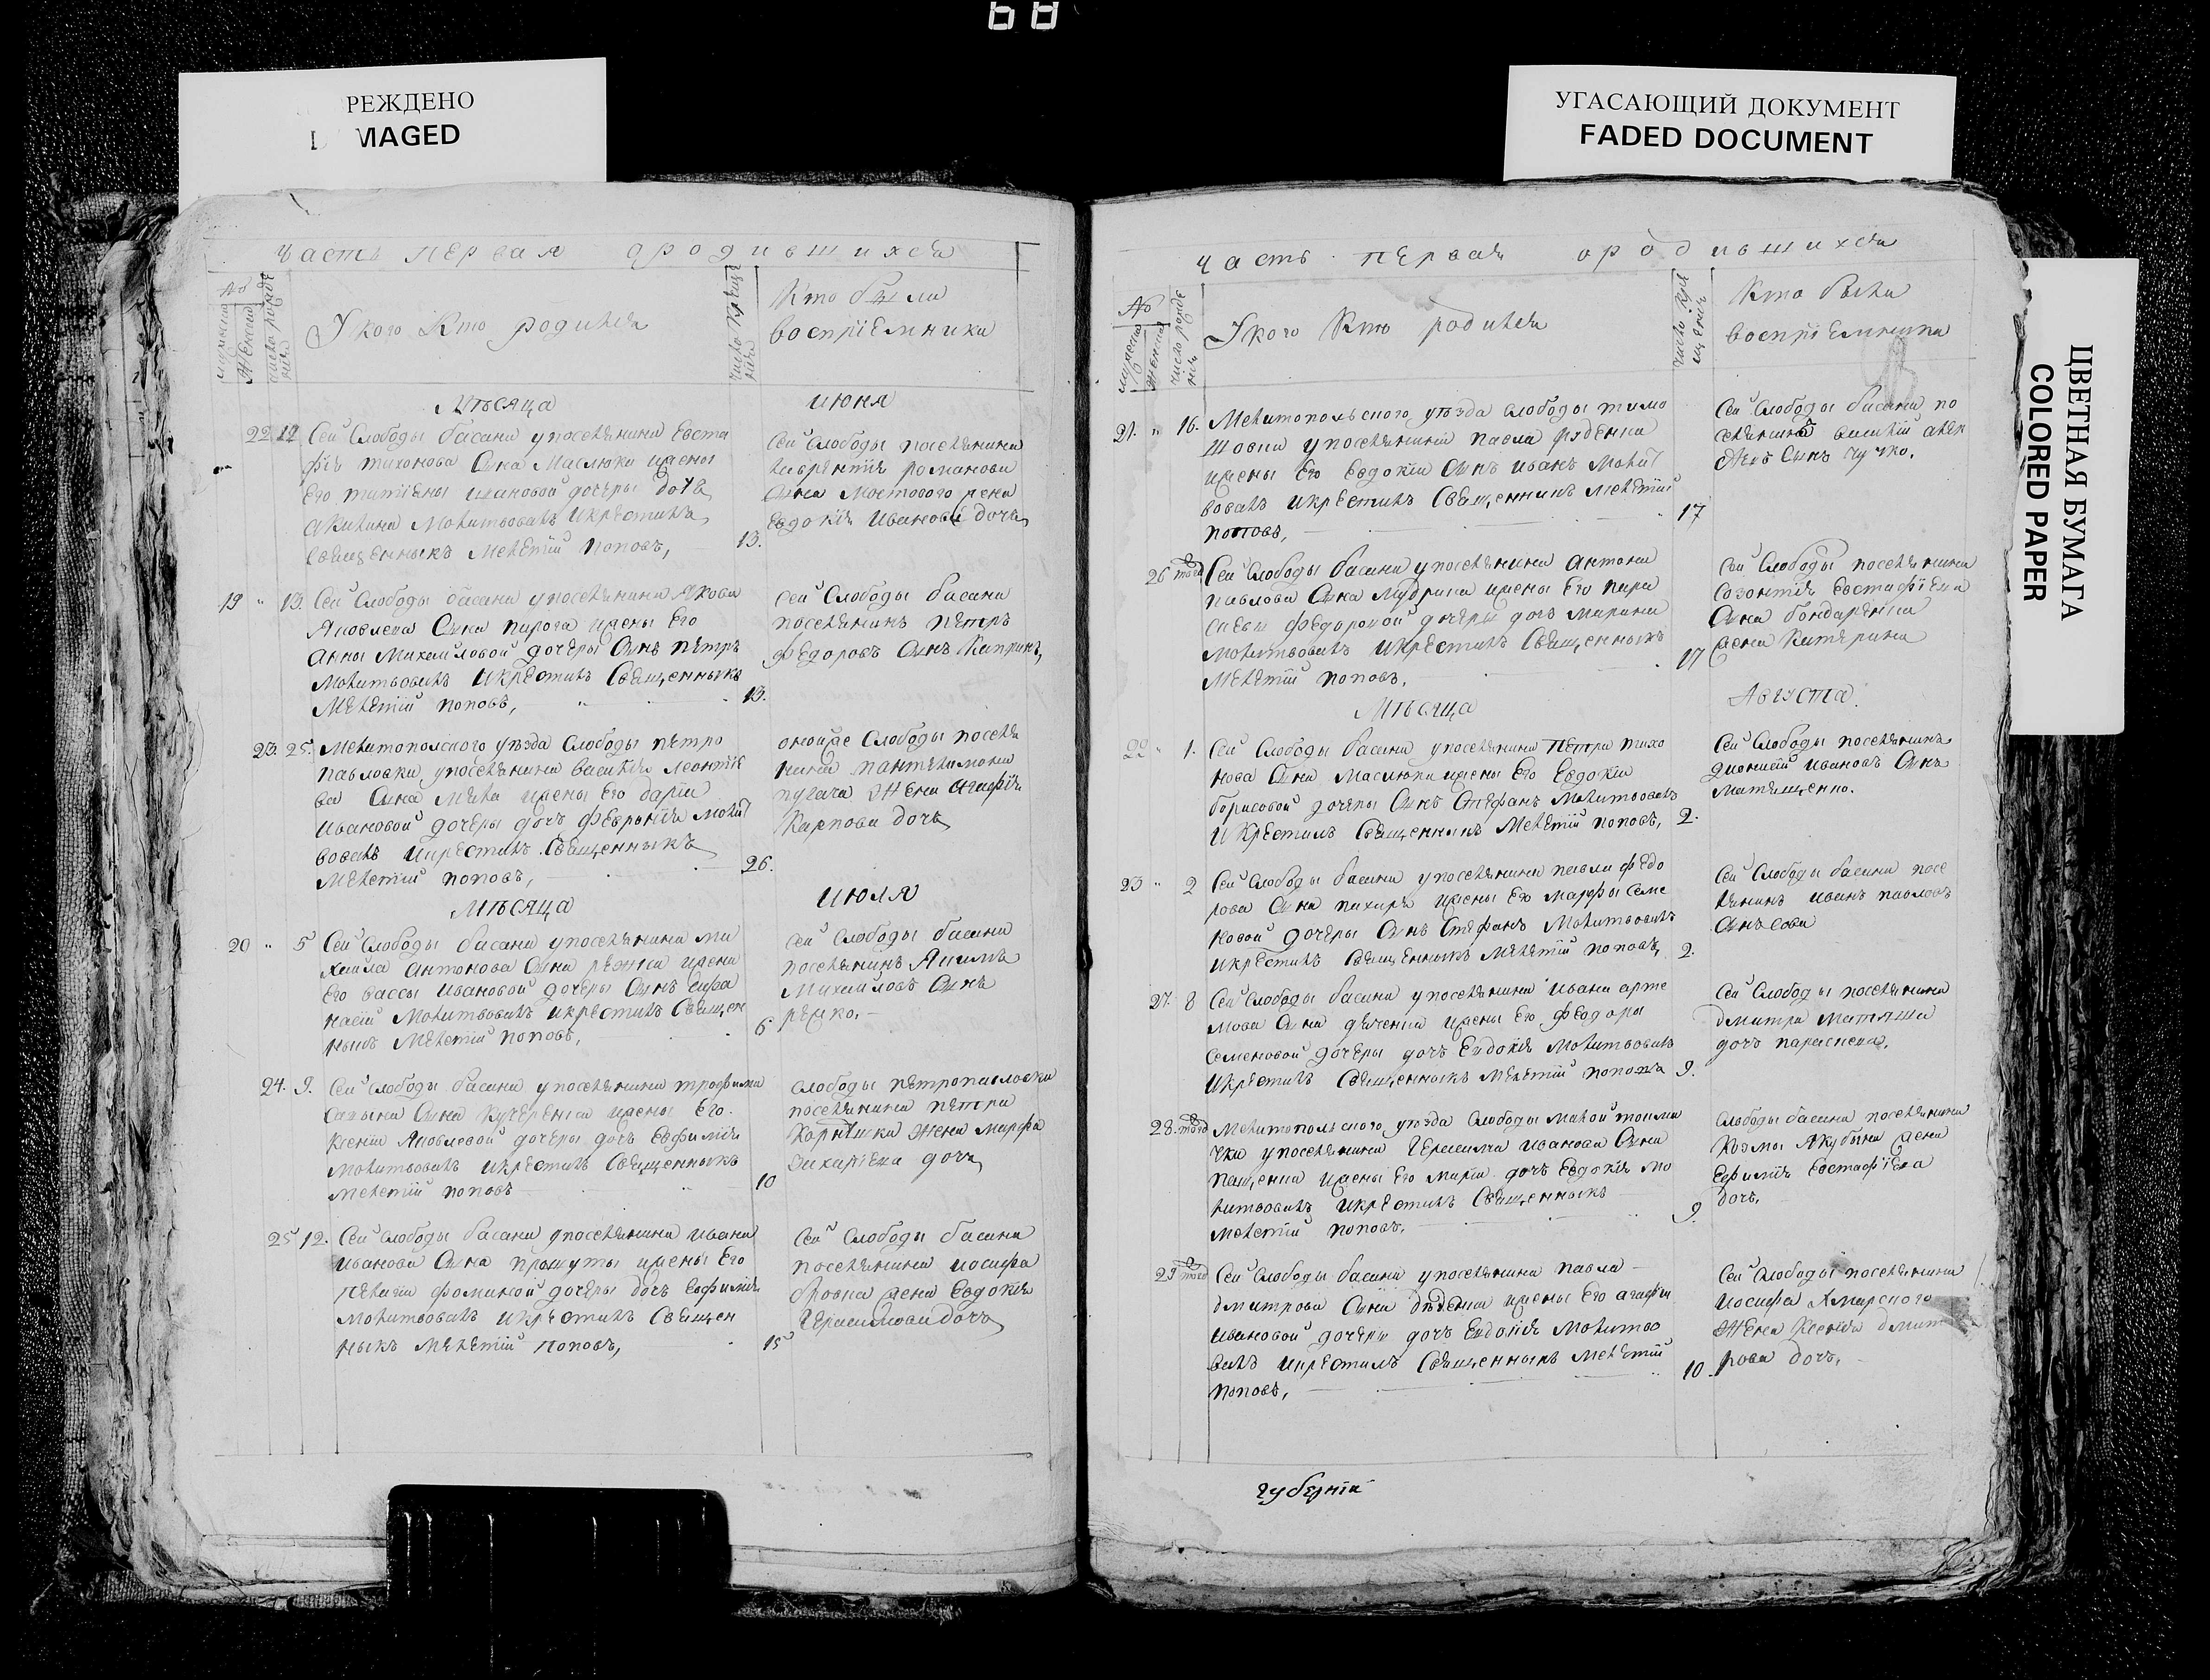 68
РЕЖДЕНО
MAGED
УГАСАЮЩИЙ ДОКУМЕНТ
FADED DOCUMENT
ЦВЕТНАЯ БУМАГА
COLORED PAPER
Часть первая ородившихся
№
мужеска
Женска
число рожде
нія
У кого Кто родился
число Креще
нія
Кто были
воспріемники
Мѣсяца июня
22 12 Сей Слободы басани упоселянина Евста
фія тихонова Сына Маслюка ижены
Его титіяны ивановой дочеры дочь
акилина Молитвовалъ Икрестилъ
Священныкъ Мелетій поповъ,
13.
Сей Слободы поселянина
лаврентія романова
Сына Мостового жена
Евдокія Иванова дочь
19 " 13. Сей Слободы басани упоселянина Якова
Яковлева Сына пирога ижены Его
Анны Михайловой дочеры Сынъ петръ
Молитвовалъ Икрестилъ Священныкъ
Мелетій поповъ,
13.
Сей Слободы басани
поселянинъ петръ
федоровъ Сынъ
23. 25. Мелитополского уѣзда Слободы петро
павловки упоселянина василія леонтіе
ва Сына ижены Его даріи
Ивановой дочеры дочь февронія Молит
вовалъ Икрестилъ Священныкъ
Мелетій поповъ,
26.
оной же Слободы поселя
нина пантелимона
пугача Жена Агафія
Карпова дочь
Мѣсяца ИЮЛЯ
20 " 5 Сей Слободы басани упоселянина ми
хайла антонова Сына ижены
Его вассы Ивановой дочеры Сынъ
Молитвовалъ Икрестилъ Священ
ныкъ Мелетій поповъ,
6
Сей Слободы басани
поселянинъ Якимъ
Михайловъ Сынъ
24. 9. Сей Слободы басани упоселянина трофима
Сына Кучеренка ижены Его
Ксеніи Яковлевой дочеры дочь Евфимія
Молитвовалъ Икрестилъ Священныкъ
Мелетій поповъ
10
Слободы петропавловки
поселянина петра
Жена марфа
захаріева дочь
25 12. Сей Слободы басани упоселянина ивана
иванова Сына ижены Его
пелагіи фоминой дочеры дочь Евфимія
Молитвовалъ Икрестилъ Священ
ныкъ Мелетій поповъ,
15
Сей Слободы басани
поселянина иосифа
жена Евдокія
Герасимова дочь
Часть первая ородившихся
№
мужеска
женска
число рожде
нія
У кого Кто родился
число Кре
щенія
Кто были
воспріемники
21. " 16. Мелитопольского уѣзда слободы тимо
шовки упоселянина павла
ижены Его Евдокіи Сынъ иванъ Молит
вовалъ Икрестилъ Священникъ Мелетій
поповъ,
17
Сей Слободы басани по
селянинъ василій
Сынъ чучко.
26 того Сей Слободы басани упоселянина антона
павлова Сына ижены Его пара
скевы федоровой дочеры дочь марина
Молитвовалъ Икрестилъ Священныкъ
Мелетій поповъ.
17
Сей Слободы поселянина
созонтія Евстафіева
Сына бондаренка
жена Катерина
Мѣсяца Августа.
22 " 1. Сей Слободы басани упоселянина петра тихо
нова Сына маслюка ижены Его Евдокіи
борисовой дочеры Сынъ Стефанъ Молитвовалъ
Икрестилъ Священникъ Мелетій поповъ,
2.
Сей Слободы поселянинъ
дионисій ивановъ Сынъ
матященко.
23 " 2 Сей Слободы басани упоселянина павла федо
рова Сына ижены Его марфы Семе
новой дочеры Сынъ Стефанъ Молитвовалъ
икрестилъ Священныкъ Мелетій поповъ,
2.
Сей Слободы басани посе
лянинъ иванъ павловъ
Сынъ сова
27. 8 Сей Слободы басани упоселянина ивана арте
мова Сына дяченка ижены Его федоры
Семеновой дочеры дочь Евдокія Молитвовалъ
Икрестилъ Священныкъ Мелетій поповъ
9.
Сей Слободы поселянина
дмитра Матяша
дочь параскева,
28. того Мелитопольского уѣзда Слободы малой токма
чки упоселянина Герасима иванова Сына
пащенка ижены Его маріи дочь Евдокія Мо
литвовалъ Икрестилъ Священныкъ
Мелетій поповъ.
9.
Слободы басани поселянина
Козмы Якубы жена
Ефимія Евстафіева
дочь,
29 того Сей Слободы басани упоселянина павла
дмитрова Сына ижены Его агафіи
Ивановой дочеры дочь Евдокія Молитво
валъ Икрестилъ Священныкъ Мелетій
поповъ,
10.
Сей Слободы поселянина
иосифа Хмарского
Жена Ксенія дмит
рова дочь,
губерніи